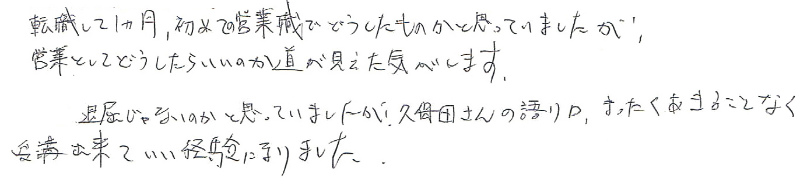 転職して1ヵ月,初めての営業職でどうしたものかと思っていましたが、
営業としてどうしたらいいのか道が見えた気がします。
退屈じゃないのかと思っていましたが、久保田さんの語り口、まったくあきることなく
受講出来ていい経験になりました。